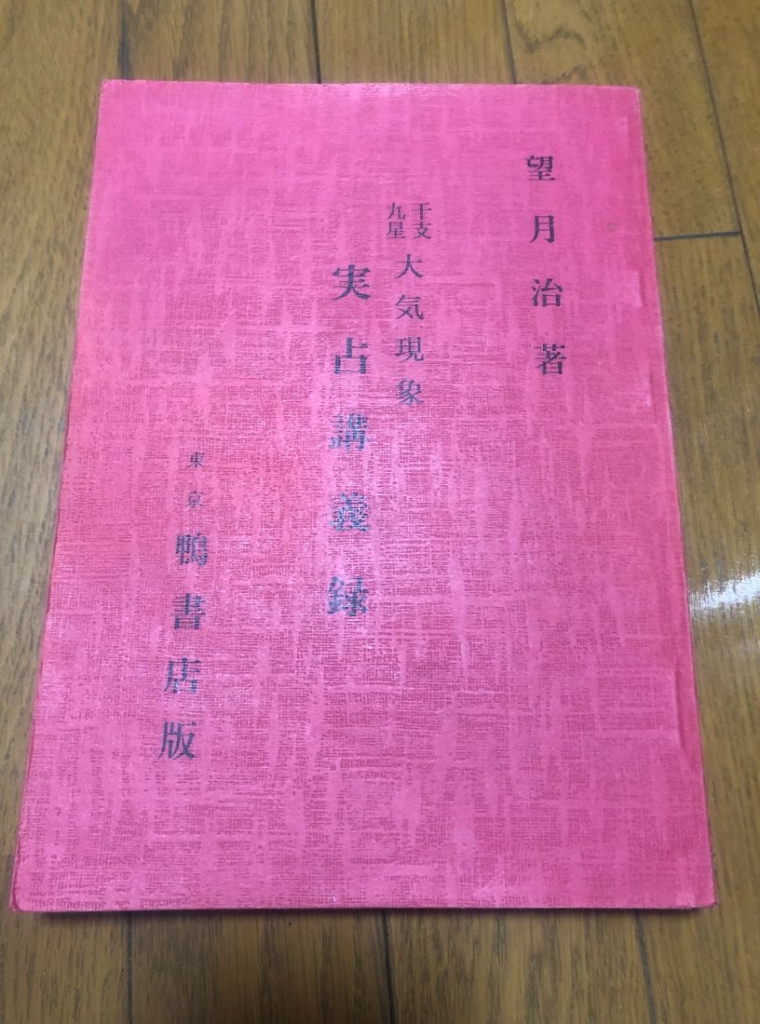 望月治著
干支
九星
大気現象
実占講義録
東京 鴨書店版